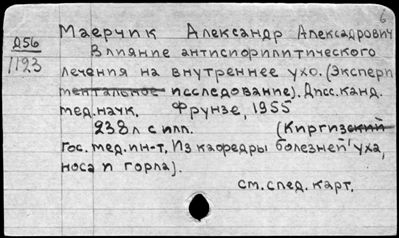 6
Д56
1123
Маерчик Александр Александрович
Влияние антисифилитического
лечения на внутреннее ухо. (Экспери
ментальное исследование). Дисс. канд.
мед. наук. Фрунзе, 1955
238л с илл. (Киргизский
Гос. мед. ин-т, Из кафедры болезней уха,
носа и горла).
см. спед. карт.